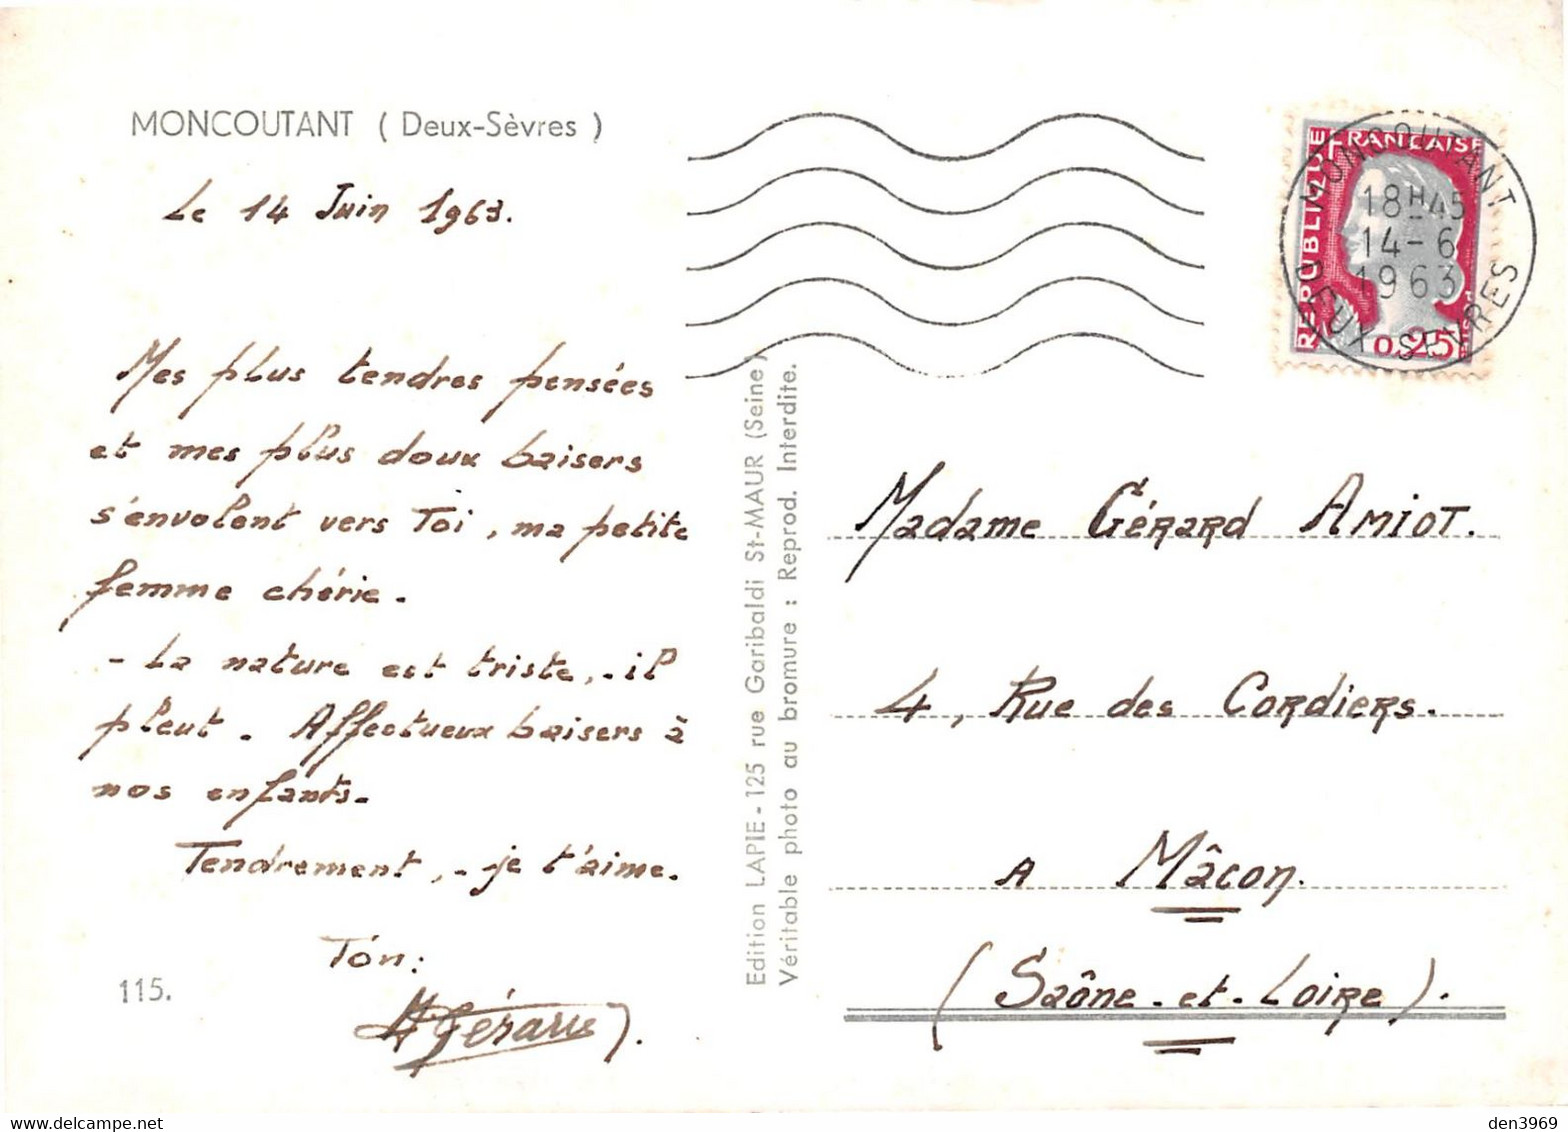 MONCOUTANT ( Deux-Sèvres )
Le 14 Juin 1963.
Mes plus tendres pensées
et mes plus doux baisers
s'envolent vers Toi, ma petite
femme chérie.
- La nature est triste, - il
pleut. Affectueux baisers à
nos enfants.
Tendrement, - je t'aime.
Ton :
Gérard
115.
Edition LAPIE - 125 rue Garibaldi St-MAUR (Seine)
Véritable photo au bromure : Reprod. Interdite.
REPUBLIQUE FRANÇAISE
0,25
MONCOUTANT
18H45
14-6
1963
DEUX SEVRES
Madame Gérard AMIOT.
4, Rue des Cordiers.
A Mâcon.
(Saône-et-Loire).
den3969